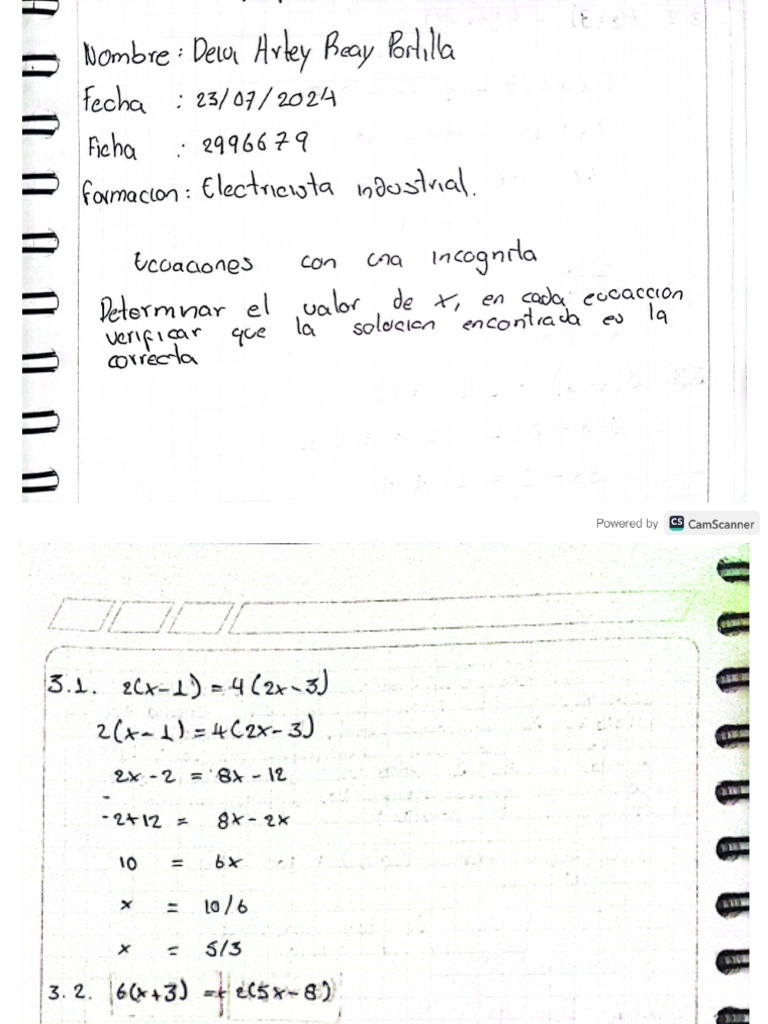 Nombre : Deivi Arley Reay Portilla
Fecha : 23/07/2024
Ficha : 2996679
formacion : Electricista industrial.
Ecuaciones con una incognita
Determinar el valor de x, en cada ecuaccion
verificar que la solucion encontrada es la
correcta
Powered by CS CamScanner
3.1. 2(x-1) = 4(2x-3)
2(x-1) = 4(2x-3)
2x - 2 = 8x - 12
-2+12 = 8x - 2x
10 = 6x
x = 10/6
x = 5/3
3.2. 6(x+3) = 2(5x-8)